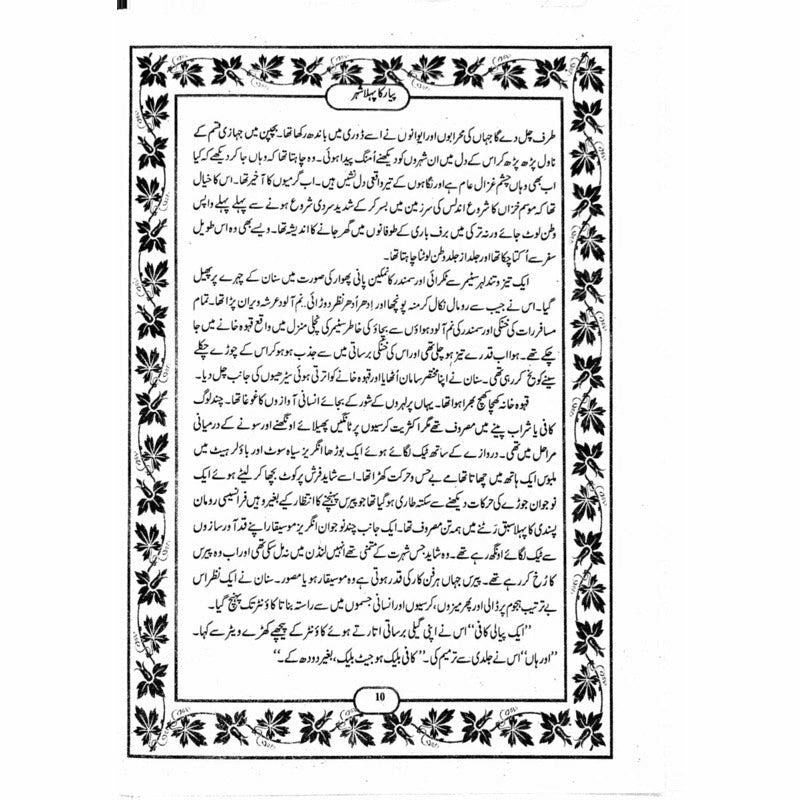 پیار کا پہلا شہر
طرف چل دے گا جہاں کی محرابوں اور ایوانوں نے اسے ڈوری میں باندھ رکھا تھا۔ بچپن میں جہازی قسم کے
ناول پڑھ پڑھ کر اس کے دل میں ان شہروں کو دیکھنے اُمنگ پیدا ہوئی۔ وہ چاہتا تھا کہ وہاں جا کر دیکھے کہ کیا
اب بھی وہاں چشم غزال عام ہے اور نگاہوں کے تیر واقعی دل نشیں ہیں۔ اب گرمیوں کا آخیر تھا۔ اس کا خیال
تھا کہ موسم خزاں کا شروع اندلس کی سرزمین میں بسر کر کے شدید سردی شروع ہونے سے پہلے پہلے واپس
وطن لوٹ جائے ورنہ ترکی میں برف باری کے طوفانوں میں گھر جانے کا اندیشہ تھا۔ ویسے بھی وہ اس طویل
سفر سے اُکتا چکا تھا اور جلد از جلد وطن لوٹنا چاہتا تھا۔
ایک تیز و تند لہر سٹیمر سے ٹکرائی اور سمندر کا نمکین پانی پھوار کی صورت میں سنان کے چہرے پر پھیل
گیا۔ اس نے جیب سے رومال نکال کر منہ پونچھا اور اِدھر اُدھر نظر دوڑائی۔ نم آلود عرشہ ویران پڑا تھا۔ تمام
مسافر رات کی خنکی اور سمندر کی نم آلود ہواؤں سے بچاؤ کی خاطر سٹیمر کی نچلی منزل میں واقع قہوہ خانے میں جا
چکے تھے۔ ہوا اب قدرے تیز ہو چلی تھی اور اس کی خنکی برساتی میں سے جذب ہو ہو کر اس کے چوڑے چکلے
سینے کو یخ کر رہی تھی۔ سنان نے اپنا مختصر سامان اُٹھایا اور قہوہ خانے کو اترتی ہوئی سیڑھیوں کی جانب چل دیا۔
قہوہ خانہ کھچا کھچ بھرا ہوا تھا۔ یہاں پر لہروں کے شور کے بجائے انسانی آوازوں کا غوغا تھا۔ چند لوگ
کافی یا شراب پینے میں مصروف تھے مگر اکثریت کرسیوں پر ٹانگیں پھیلائے اونگھنے اور سونے کے درمیانی
مراحل میں تھی۔ دروازے کے ساتھ ٹیک لگائے ہوئے ایک بوڑھا انگریز سیاہ سوٹ اور باؤلر ہیٹ میں
ملبوس ایک ہاتھ میں چھاتا تھامے بے حس و حرکت کھڑا تھا۔ اسے شاید فرش پر کوٹ بچھا کر لیٹے ہوئے ایک
نوجوان جوڑے کی حرکات دیکھنے سے سکتہ طاری ہو گیا تھا جو پیرس پہنچنے کا انتظار کیے بغیر وہیں فرانسیسی رومان
پسندی کا پہلا سبق رَٹنے میں ہمہ تن مصروف تھا۔ ایک جانب چند نوجوان انگریز موسیقار اپنے قد آور سازوں
سے ٹیک لگائے اونگھ رہے تھے۔ وہ شاید جس شہرت کے متمنی تھے انہیں لنڈن میں نہ مل سکی تھی اور اب وہ پیرس
کا رُخ کر رہے تھے۔ پیرس جہاں ہر فن کار کی قدر ہوتی ہے وہ موسیقار ہو یا مصور۔ سنان نے ایک نظر اس
بے ترتیب ہجوم پر ڈالی اور پھر میزوں، کرسیوں اور انسانی جسموں میں سے راستہ بناتا کاؤنٹر تک پہنچ گیا۔
”ایک پیالی کافی“ اس نے اپنی گیلی برساتی اتارتے ہوئے کاؤنٹر کے پیچھے کھڑے ویٹر سے کہا۔
”اور ہاں“ اس نے جلدی سے ترمیم کی۔ ”کافی بلیک ہو جیٹ بلیک، بغیر دودھ کے۔“
10